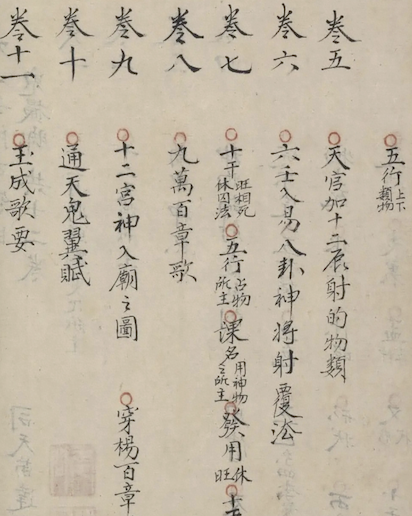 五行上下類物
卷五 天官加十二辰射的物類
卷六 六壬入易八卦神將射覆法
卷七 十干旺相死休囚法 五行占物所主 課名用神物之所主 發用休旺 十
卷八 九萬百章歌
卷九 十二宮神入廟之圖 穿楊百章
卷十 通天鬼翼賦
卷十一 玉成歌要